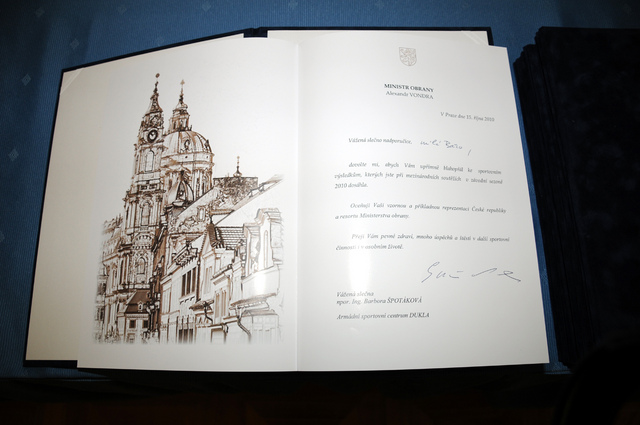 MINISTR OBRANY
Alexandr VONDRA
V Praze dne 15. října 2010
Vážená slečno nadporučice, milá Báro,
dovolte mi, abych Vám upřímně blahopřál ke sportovním
výsledkům, kterých jste při mezinárodních soutěžích v letošní sezoně
2010 dosáhla.
Oceňuji Vaši vzornou a příkladnou reprezentaci České republiky
a resortu Ministerstva obrany.
Přeji Vám pevné zdraví, mnoho úspěchů a štěstí v další sportovní
činnosti i v osobním životě.
Vážená slečna
npor. Ing. Barbora ŠPOTÁKOVÁ
Armádní sportovní centrum DUKLA